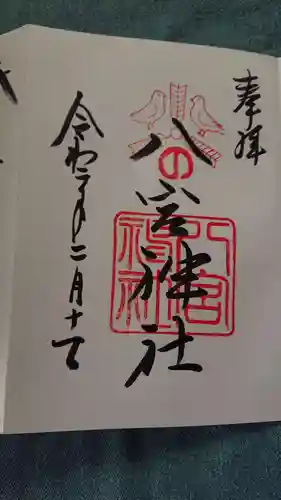 奉拝
八宮神社
の
八宮神社
令和二年二月十一日